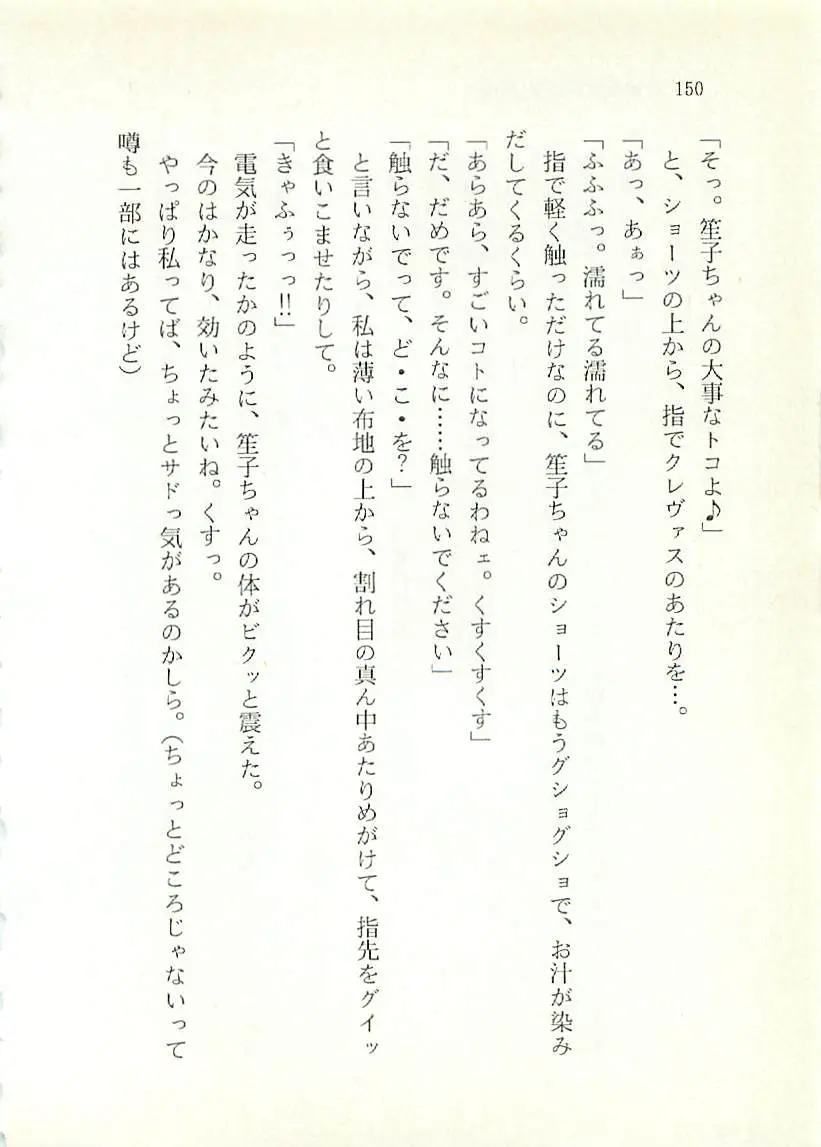 150
「そっ。笙子ちゃんの大事なトコよ♪」
と、ショーツの上から、指でクレヴァスのあたりを…。
「あっ、あぁっ」
「ふふふっ。濡れてる濡れてる」
指で軽く触っただけなのに、笙子ちゃんのショーツはもうグショグショで、お汁が染み
だしてくるくらい。
「あらあら、すごいコトになってるわねェ。くすくすくす」
「だ、だめです。そんなに……触らないでください」
「触らないでって、ど・こ・を？」
と言いながら、私は薄い布地の上から、割れ目の真ん中あたりめがけて、指先をグイッ
と食いこませたりして。
「きゃふぅっっ!!」
電気が走ったかのように、笙子ちゃんの体がビクッと震えた。
今のはかなり、効いたみたいね。くすっ。
やっぱり私ってば、ちょっとサドっ気があるのかしら。（ちょっとどころじゃないって
噂も一部にはあるけど）